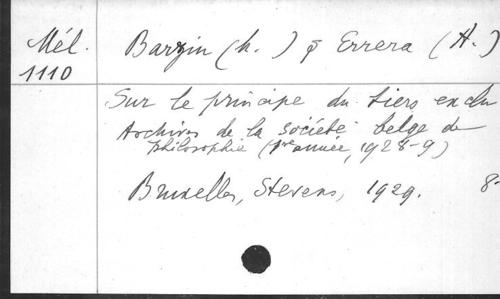 Mél.
1110
Barzin (M.) & Errera (A.)
Sur le principe du tiers exclu
Archives de la société belge de
philosophie (1re année, 1928-9)
Bruxelles, Stevens, 1929. 8-